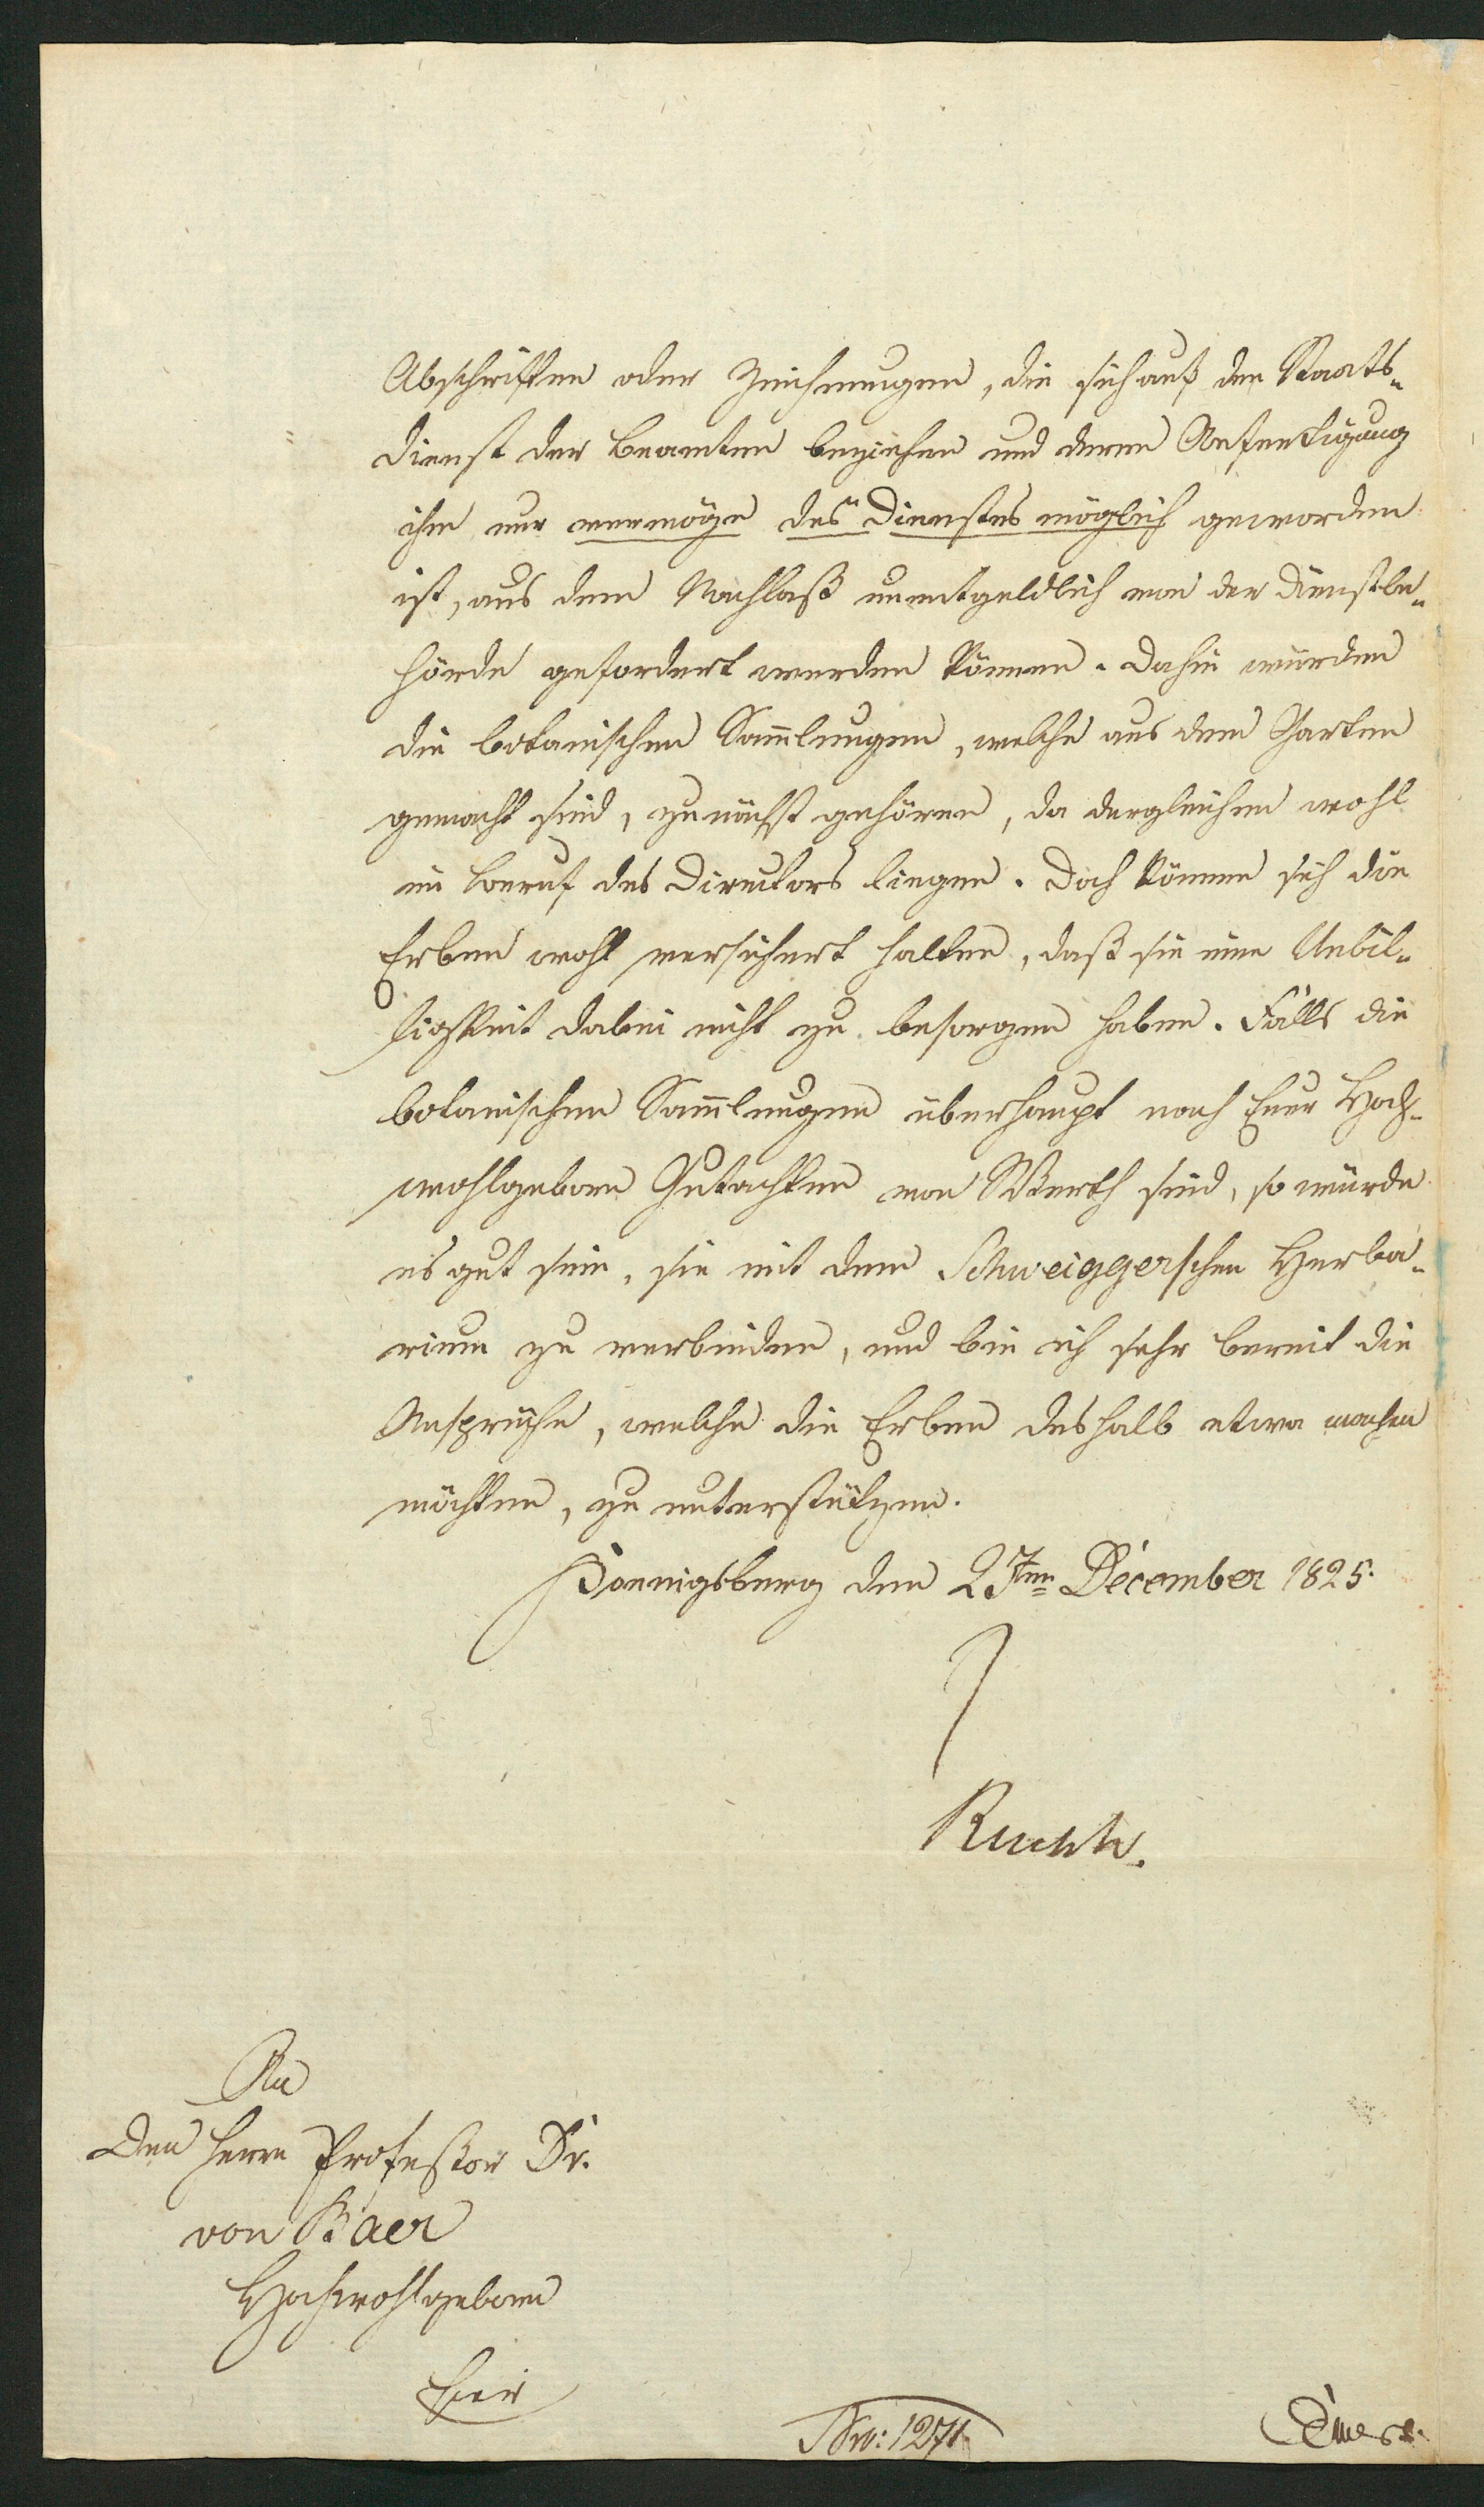 Abschriften oder Zeichnungen, die sich auf den Staats-
dienst der Beamten beziehen und deren Anfertigung
ihm nur vermöge des Dienstes möglich geworden
ist, aus dem Nachlaß unentgeldlich von der Dienstbe-
hörde gefordert werden können. Dahin würden
die botanischen Sam̄lungen, welche aus dem Garten
gemacht sind, zunächst gehören, da dergleichen wohl
im Beruf des Directors liegen. Doch können sich die
Erben wohl versichert halten, daß sie eine Unbil-
ligkeit dabei nicht zu besorgen haben. Falls die
botanischen Sam̄lungen überhaupt nach Euer Hoch-
wohlgeboren Gutachten von Werth sind, so würde
es gut sein, sie mit dem Schweiggerschen Herba-
rium zu verbinden, und bin ich sehr bereit die
Ansprüche, welche die Erben deshalb etwa machen
möchten, zu unterstützen.
Koenigsberg den 27ten December 1825.
An
den Herrn Professor Dr.
von Baer
Hochwohlgeboren
hier
No: 1271